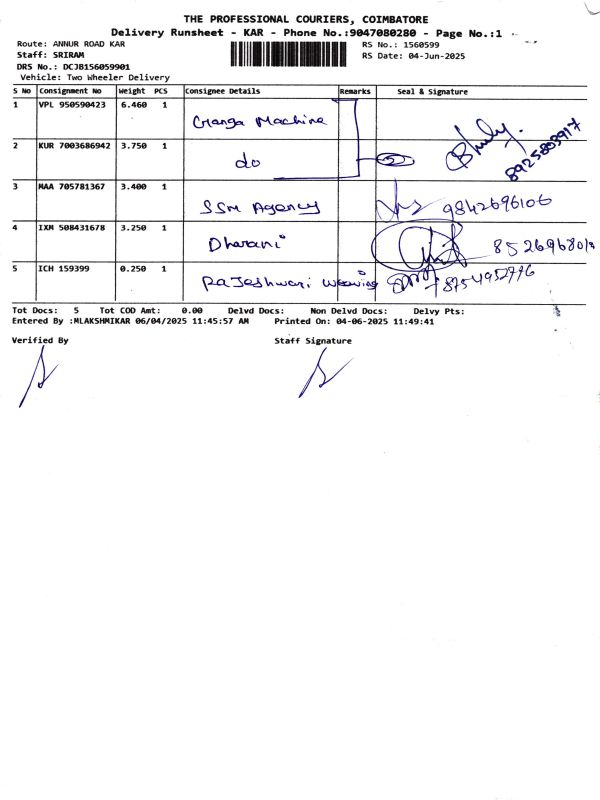 THE PROFESSIONAL COURIERS, COIMBATORE
Delivery Runsheet - KAR - Phone No.:9047080280 - Page No.:1
Route: ANNUR ROAD KAR RS No.: 1560599
Staff: SRIRAM RS Date: 04-Jun-2025
DRS No.: DCJB156059901
Vehicle: Two Wheeler Delivery
S No Consignment No Weight PCS Consignee Details Remarks Seal & Signature
1 VPL 950590423 6.460 1 Ganga Machine
2 KUR 7003686942 3.750 1 do 2 8925803917
3 MAA 705781367 3.400 1 SSM Agency 9842696106
4 IXM 508431678 3.250 1 Dharani
5 ICH 159399 0.250 1 Rajeshwari Weaving 8754952776
Tot Docs: 5 Tot COD Amt: 0.00 Delvd Docs: Non Delvd Docs: Delvy Pts:
Entered By :MLAKSHMIKAR 06/04/2025 11:45:57 AM Printed On: 04-06-2025 11:49:41
Verified By Staff Signature